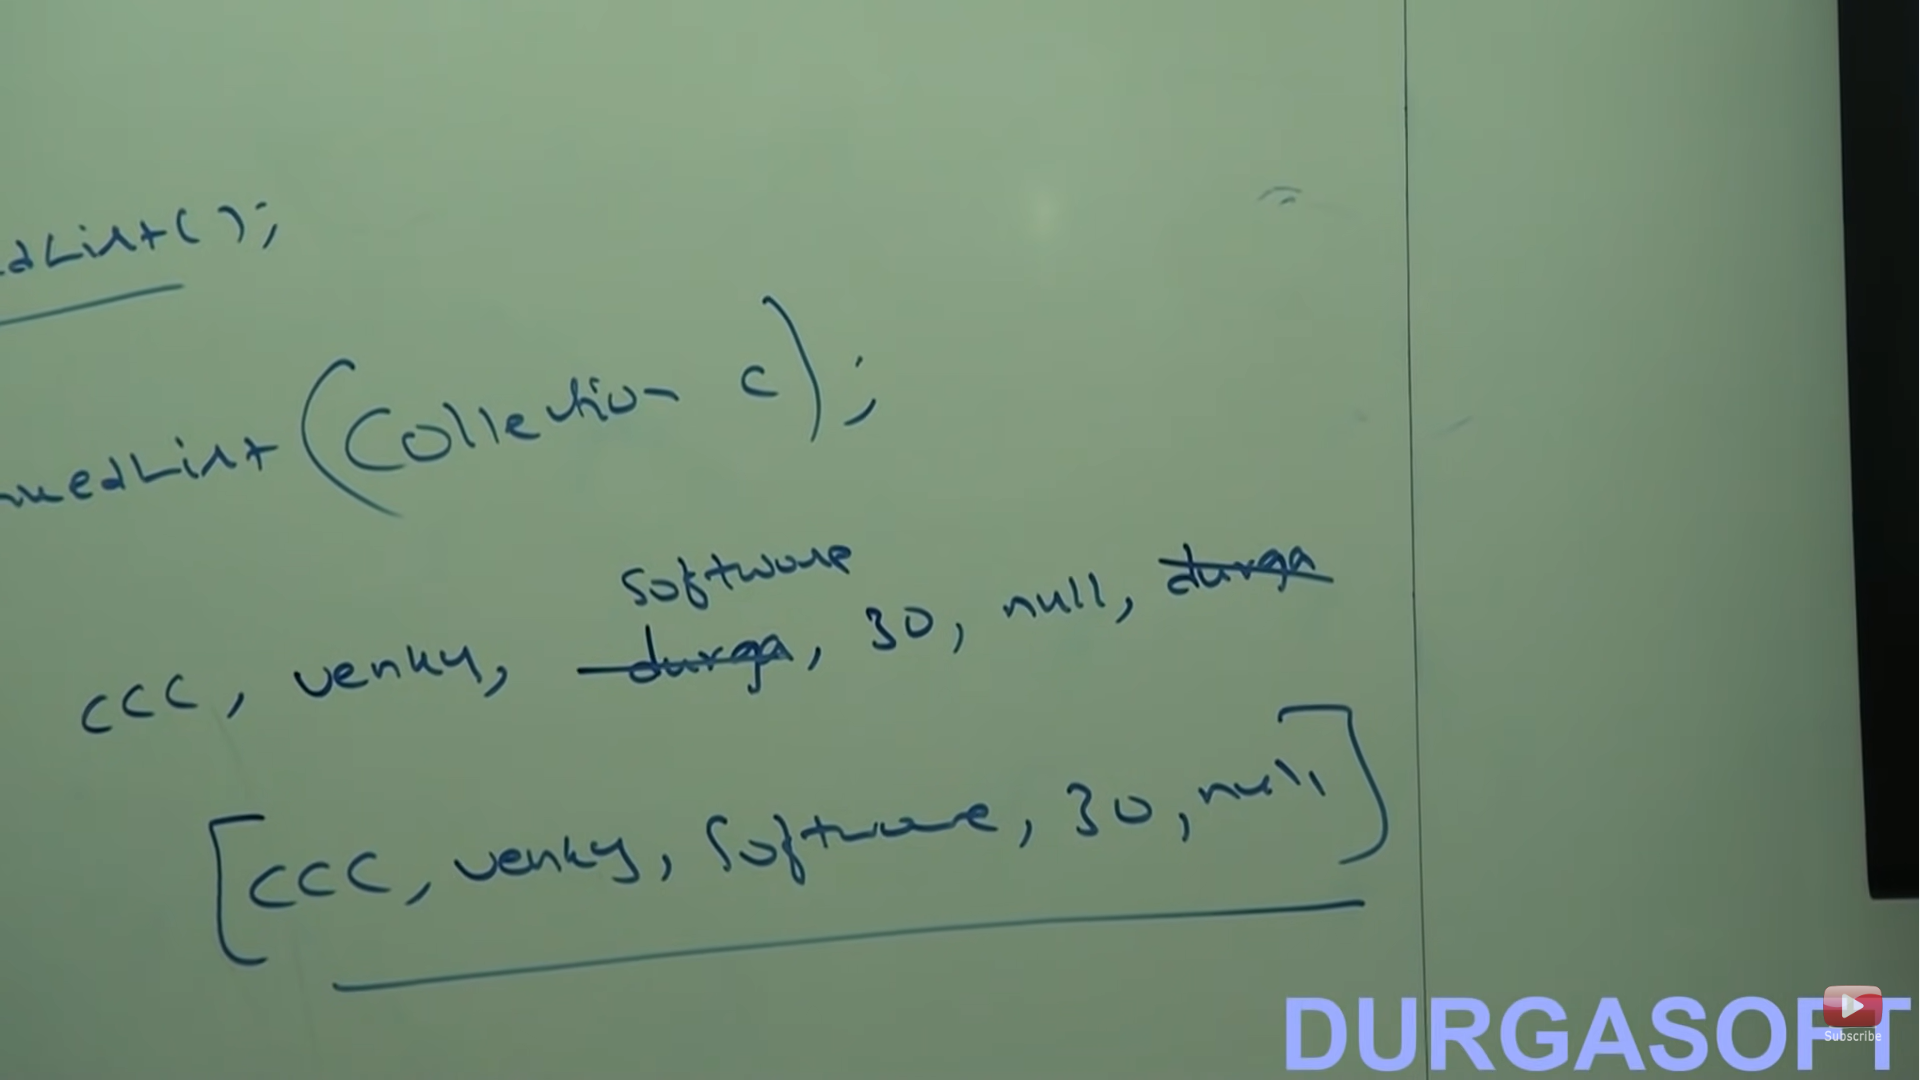 dList();
nkedList (Collection c);
software
ccc, venky, durga, 30, null, durga
[ccc, venky, software, 30, null]
DURGASOFT
Subscribe